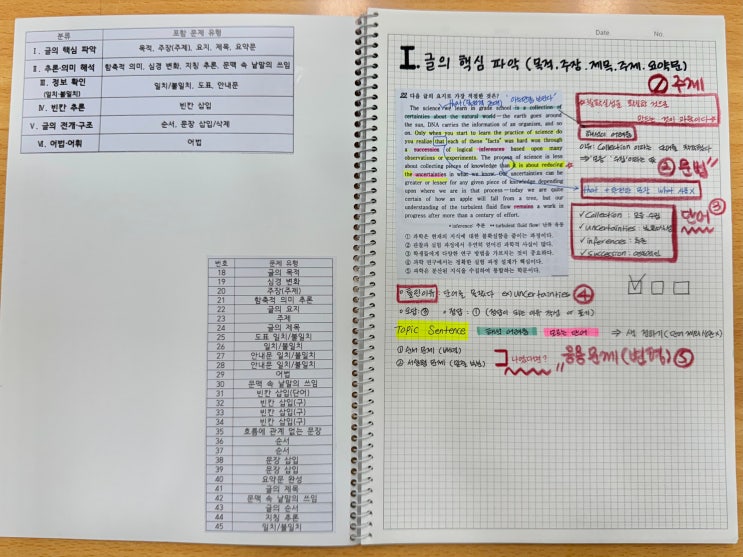 분류 포함 문제 유형
Ⅰ. 글의 핵심 파악 목적, 주장(주제), 요지, 제목, 요약문
Ⅱ. 추론·의미 해석 함축적 의미, 심경 변화, 지칭 추론, 문맥 속 낱말의 쓰임
Ⅲ. 정보 확인
(일치·불일치)
일치/불일치, 도표, 안내문
Ⅳ. 빈칸 추론 빈칸 삽입
Ⅴ. 글의 전개·구조 순서, 문장 삽입/삭제
Ⅵ. 어법·어휘 어법
번호 문제 유형
18 글의 목적
19 심경 변화
20 주장(주제)
21 함축적 의미 추론
22 글의 요지
23 주제
24 글의 제목
25 도표 일치/불일치
26 일치/불일치
27 안내문 일치/불일치
28 안내문 일치/불일치
29 어법
30 문맥 속 낱말의 쓰임
31 빈칸 삽입(단어)
32 빈칸 삽입(구)
33 빈칸 삽입(구)
34 빈칸 삽입(구)
35 흐름에 관계 없는 문장
36 순서
37 순서
38 문장 삽입
39 문장 삽입
40 요약문 완성
41 글의 제목
42 문맥 속 낱말의 쓰임
43 글의 순서
44 지칭 추론
45 일치/불일치
Date. No.
Ⅰ. 글의 핵심 파악 (목적.주장.제목.주제.요약문)
② 주제
22 다음 글의 요지로 가장 적절한 것은?
The science we learn in grade school is a collection of
certainties about the natural world — the earth goes around
the sun, DNA carries the information of an organism, and so
on. Only when you start to learn the practice of science do
you realize that each of these "facts" was hard won through
a succession of logical inferences based upon many
observations or experiments. The process of science is less
about collecting pieces of knowledge than it is about reducing
the uncertainties in what we know. Our uncertainties can be
greater or lesser for any given piece of knowledge depending
upon where we are in that process — today we are quite
certain of how an apple will fall from a tree, but our
understanding of the turbulent fluid flow remains a work in
progress after more than a century of effort.
* inference: 추론 ** turbulent fluid flow: 난류 유동
① 과학은 현재의 지식에 대한 불확실함을 줄이는 과정이다.
② 관찰과 실험 과정에서 우연히 얻어진 과학적 사실이 많다.
③ 학생들에게 다양한 연구 방법을 가르치는 것이 중요하다.
④ 과학 연구에서는 정확한 실험 과정 설계가 핵심이다.
⑤ 과학은 분산된 지식을 수집하여 통합하는 학문이다.
문법"
단어 ③
✓ Collection : 모음, 수집
✓ uncertainties : 불확실성
✓ inferences : 추론
✓ succession :
틀린이유 : 단어를 몰랐다 ex) uncertainties ④
Topic Sentence 해석 어려움 모르는 단어
① 순서 문제
② 서술형 문제
나온다면? "응용문제(변형) ⑤